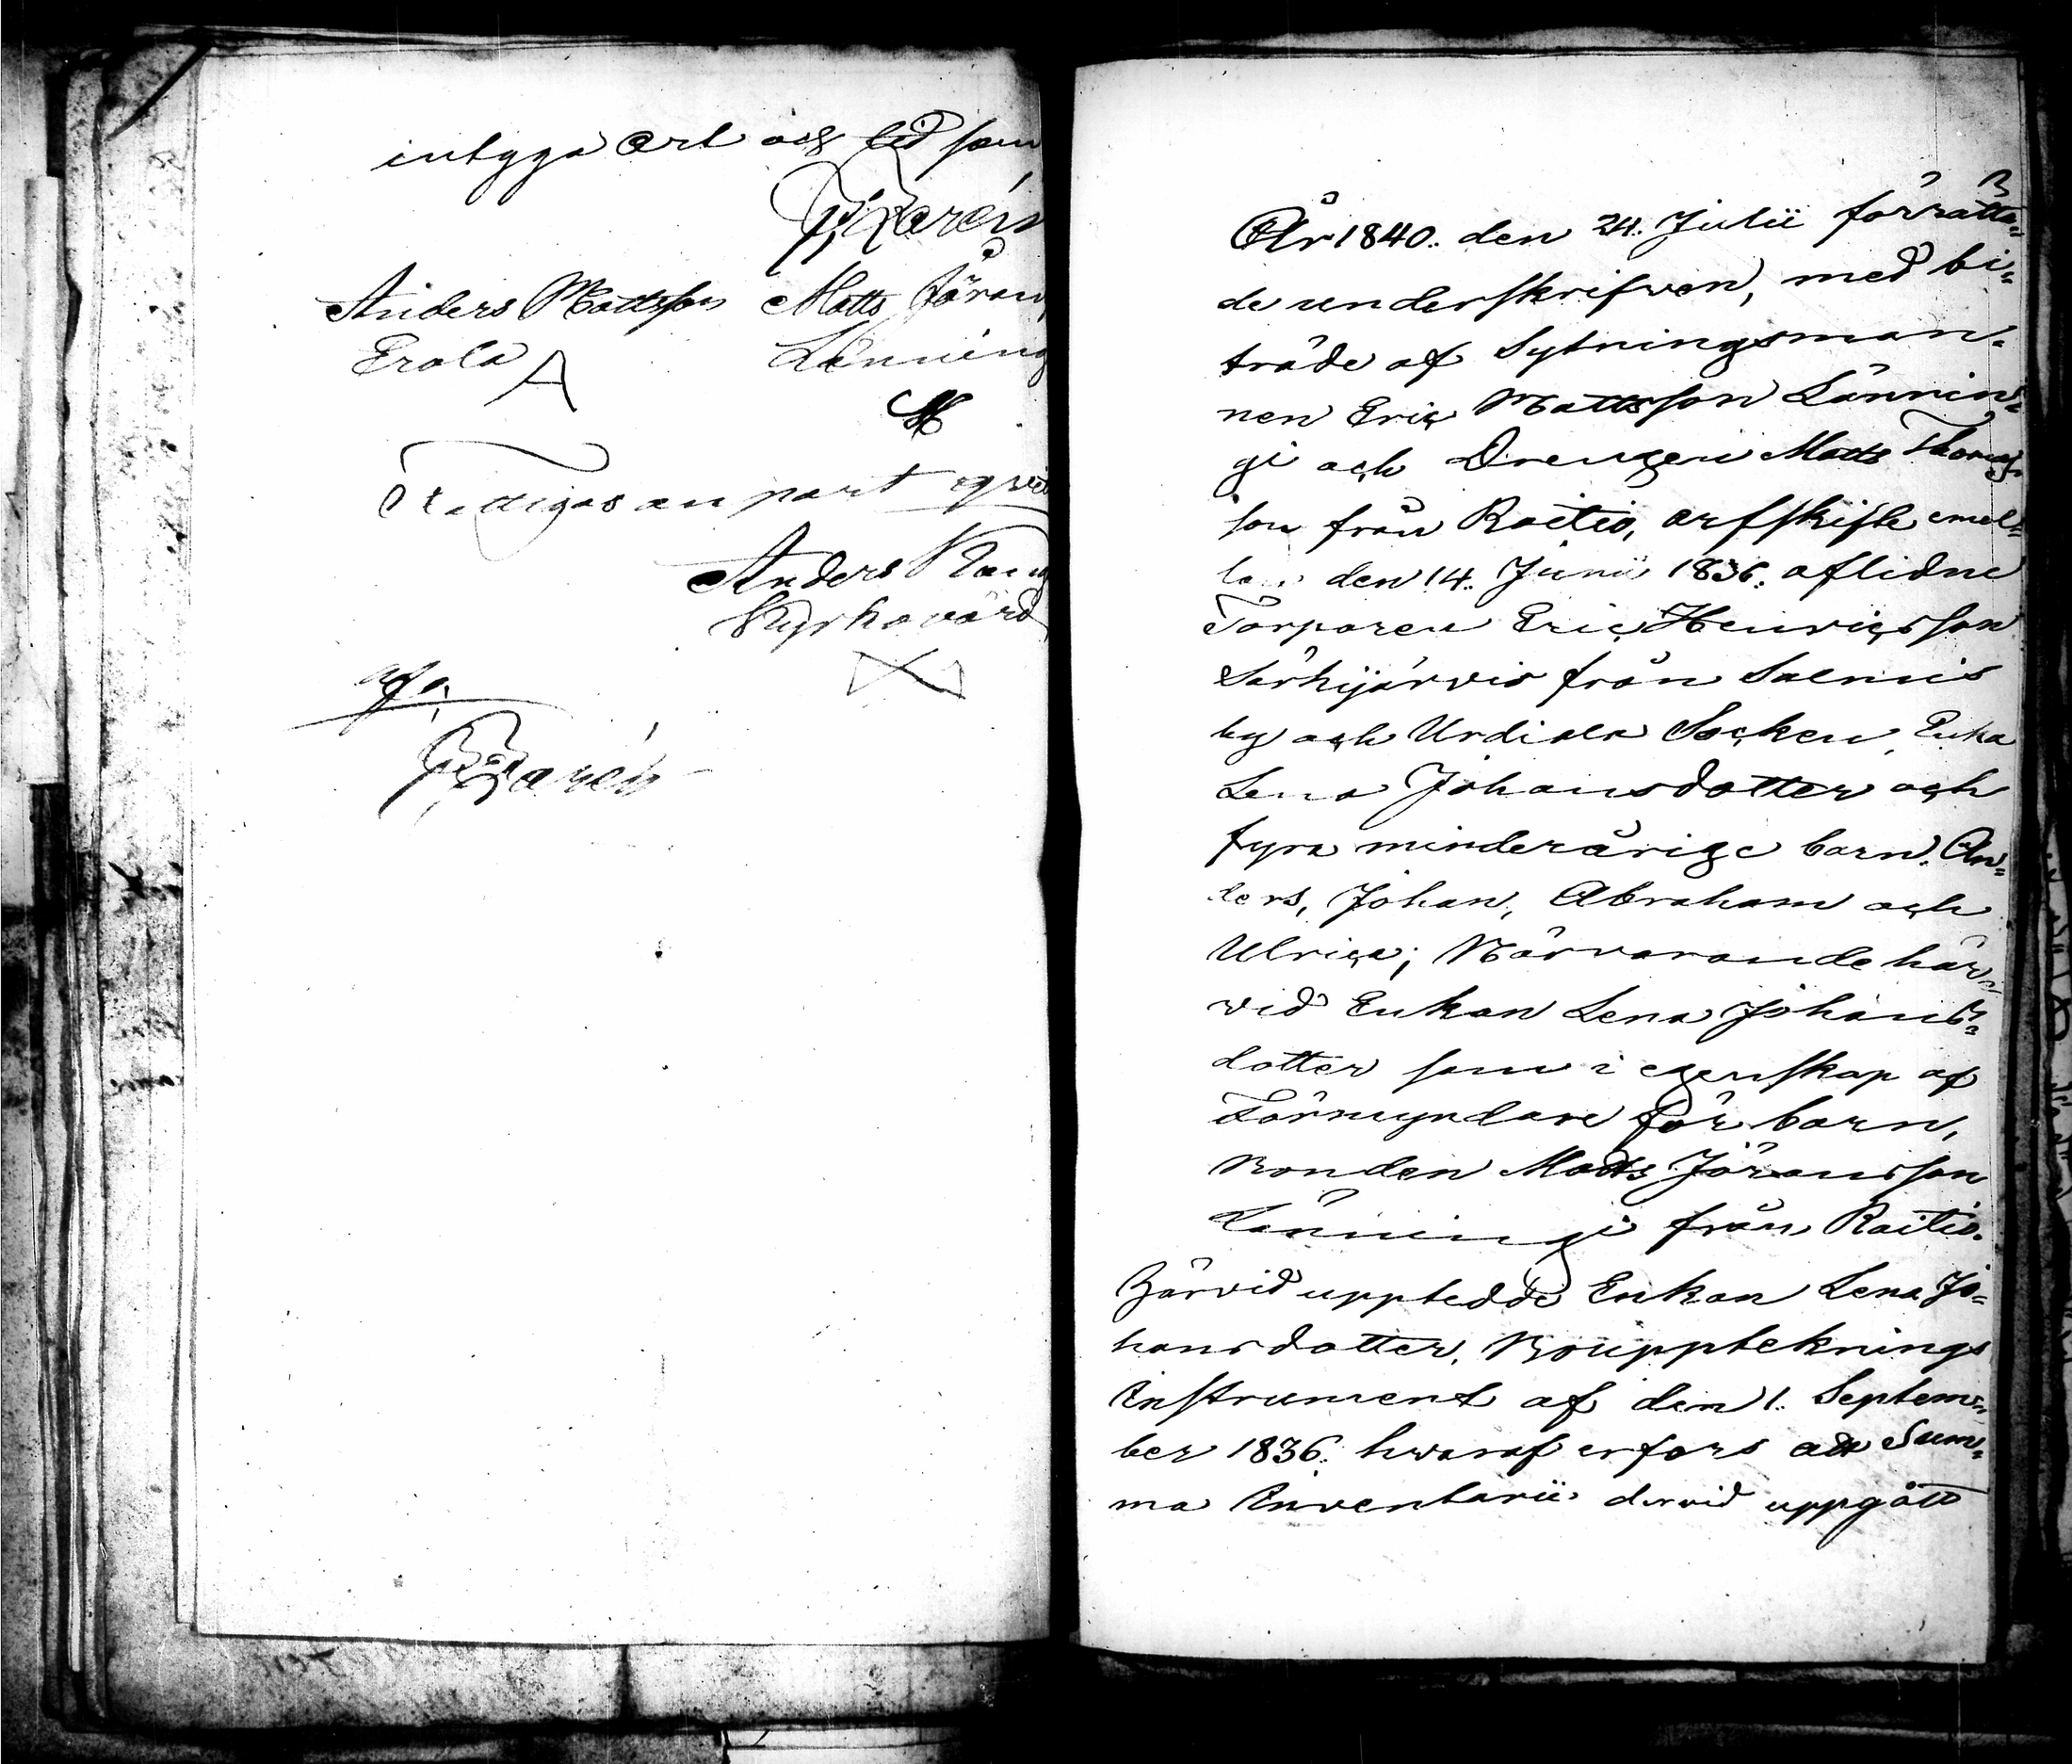 intyga ort och tid som
Karén
Anders Mattsson Matts Jöran
Erola A Länning
M
Fattigas an part qvit
Anders
Kyrkovärd
Karén
3
År 1840. den 24. Julii förrätta=
de underskrifven, med bi=
träde af Sytningsman=
nen Eric Mattsson Lännin=
gi och Drengen Matts Thomas
son från Raitio, arfskifte emel=
lan den 14. Junii 1836. aflidne
Torparen Eric Henricsson
Särkijärvis från Salmis
by och Urdiala Socken, Enka
Lena Johansdotter och
fyra minderårige barn. An=
ders, Johan, Abraham och
Ulrica; Närvarande här=
vid Enkan Lena Johans=
dotter som i egenskap af
Förmyndare för barn,
Bonden Matts Jöransson
Länningi från Raitio.
Härvid upptedde Enkan Lena Jo=
hansdotter, Boupptecknings
Instrument af den 1. Septem=
ber 1836. hvaraf erfors att Sum=
ma Inventarii dervid uppgått